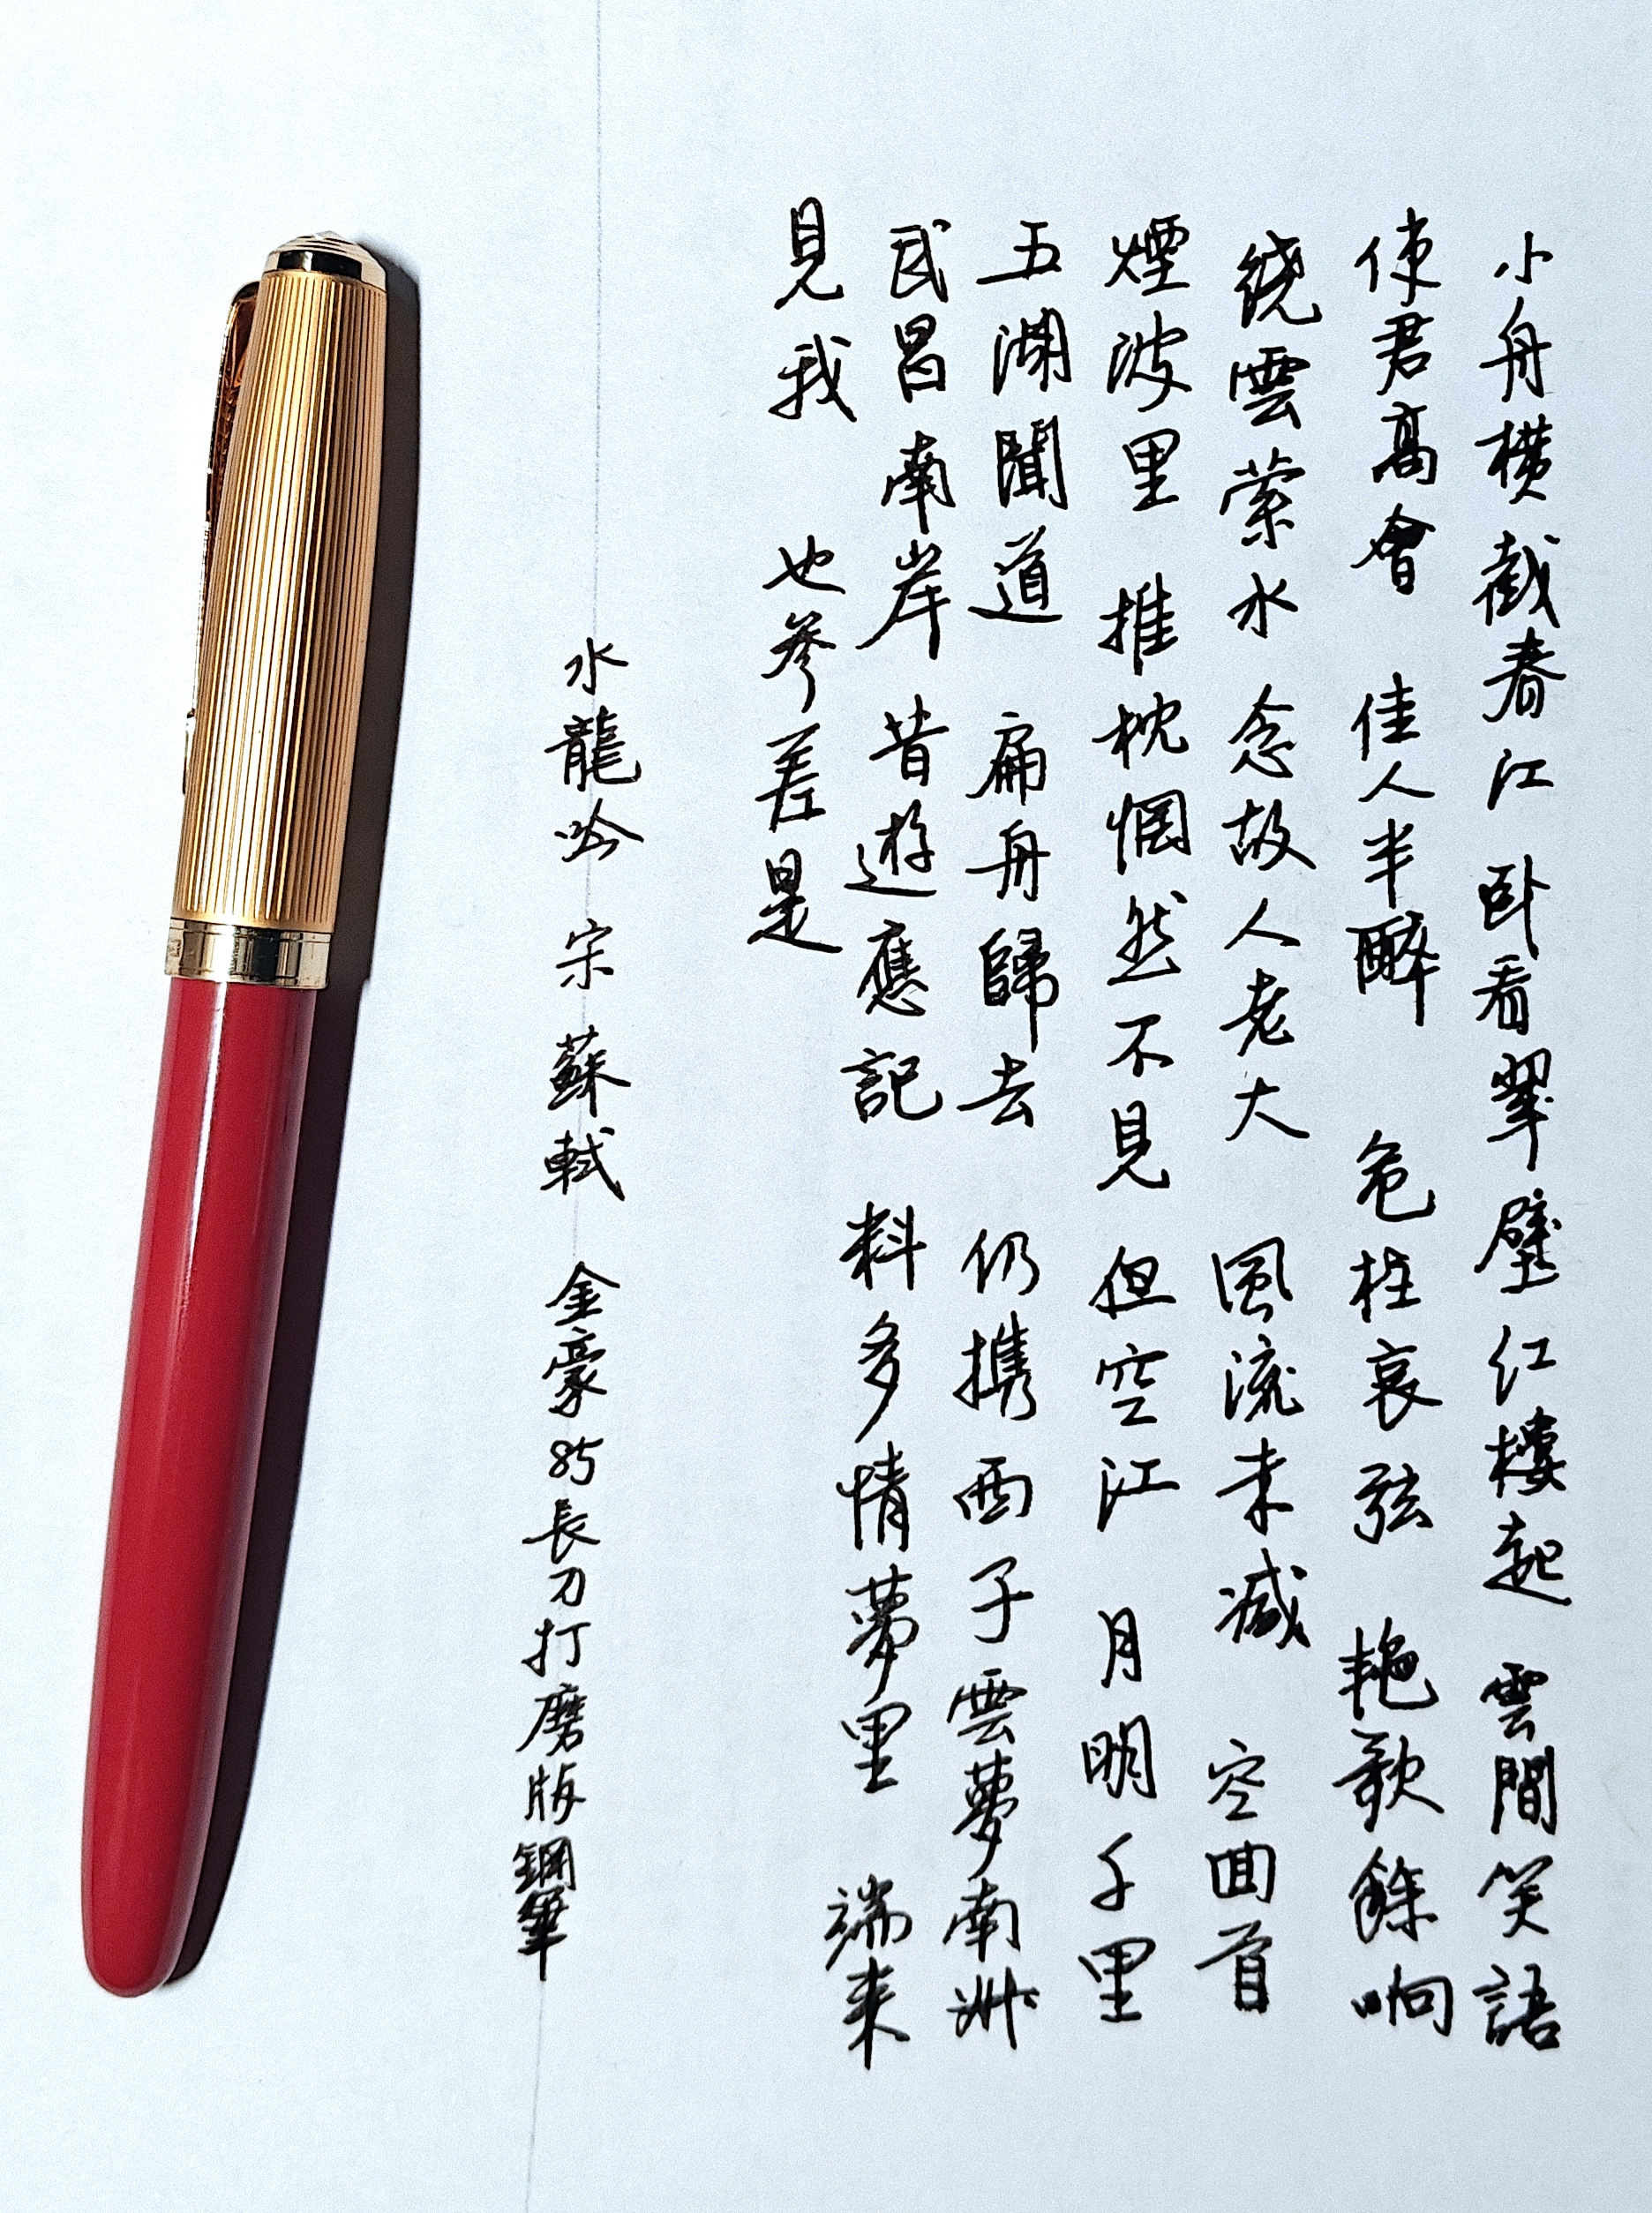 小舟横截春江 卧看翠壁红樓起 雲間笑語
使君高會 佳人半醉 危柱哀弦 艳歌餘响
绕雲萦水 念故人老大 風流未减 空回首
煙波里 推枕惘然不見 但空江 月明千里
五湖聞道 扁舟歸去 仍携西子 雲夢南州
武昌南岸 昔遊應記 料多情夢里 端来
見我 也參差是
水龍吟 宋 蘇軾 金豪85長刀打磨版鋼筆